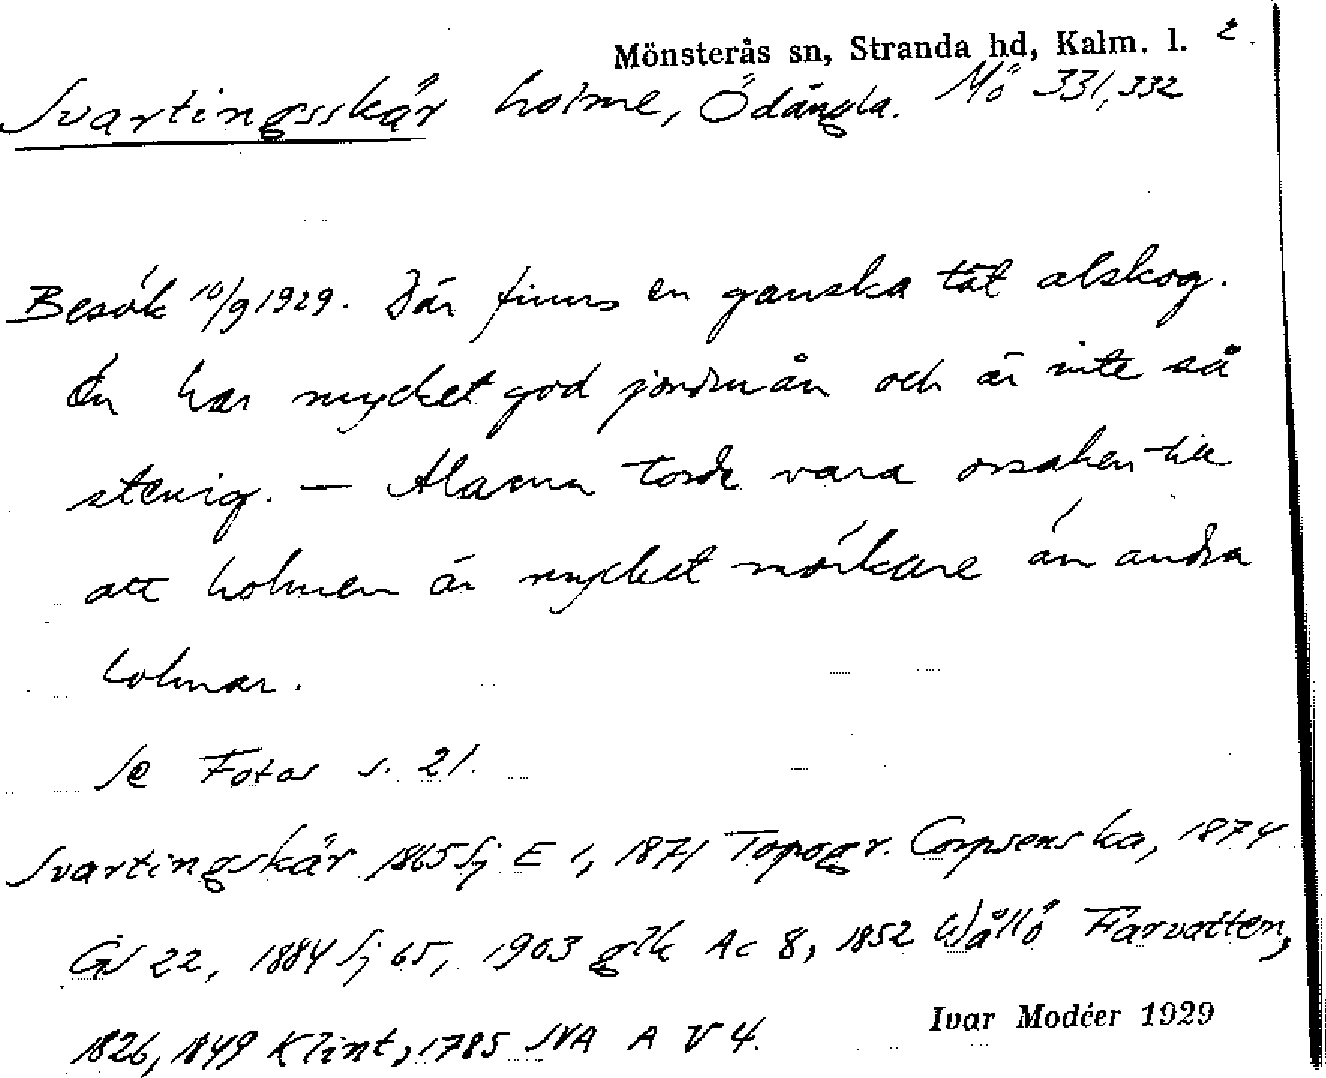 Mönsterås sn, Stranda hd, Kalm. l. 2.
Svartingsskär holme, Ödängla. Mö 331, 332
Besök 10/9 1929. Där finns en ganska tät alskog.
Ön har mycket god jordmån och är inte så
stenig. — Alarna torde vara orsaken till
att holmen är mycket mörkare än andra
holmar.
Se Fotos s. 21.
Svartingskär 1865 Sj E 1, 1871 Topogr. Corpsens ka, 1874
GV 22, 1884 Sj 65, 1903 glk Ac 8, 1852 Wållö Farvatten,
1826, 1849 Klint, 1785 SVA A V 4.
Ivar Modéer 1929